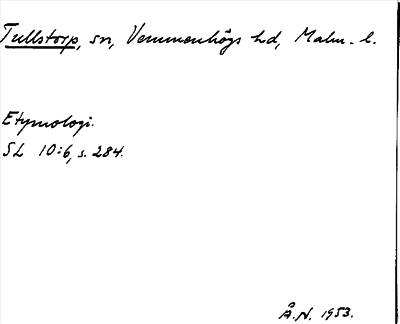 Tullstorp, sn, Vemmenhögs hd, Malm. l.
Etymologi.
SL 10:6, s. 284.
Å.N. 1953.